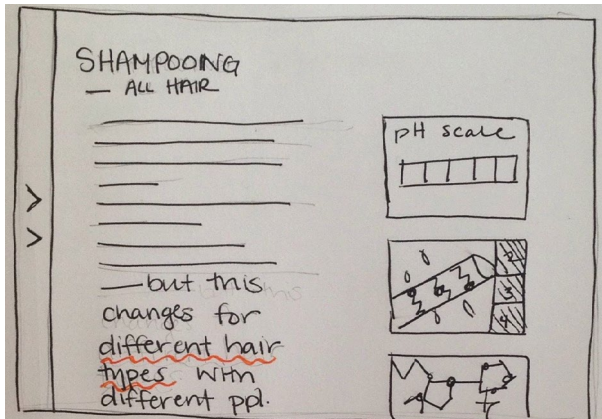 SHAMPOOING
— ALL HAIR
—but this
changes for
different hair
types with
different ppl.
pH scale
2
3
4